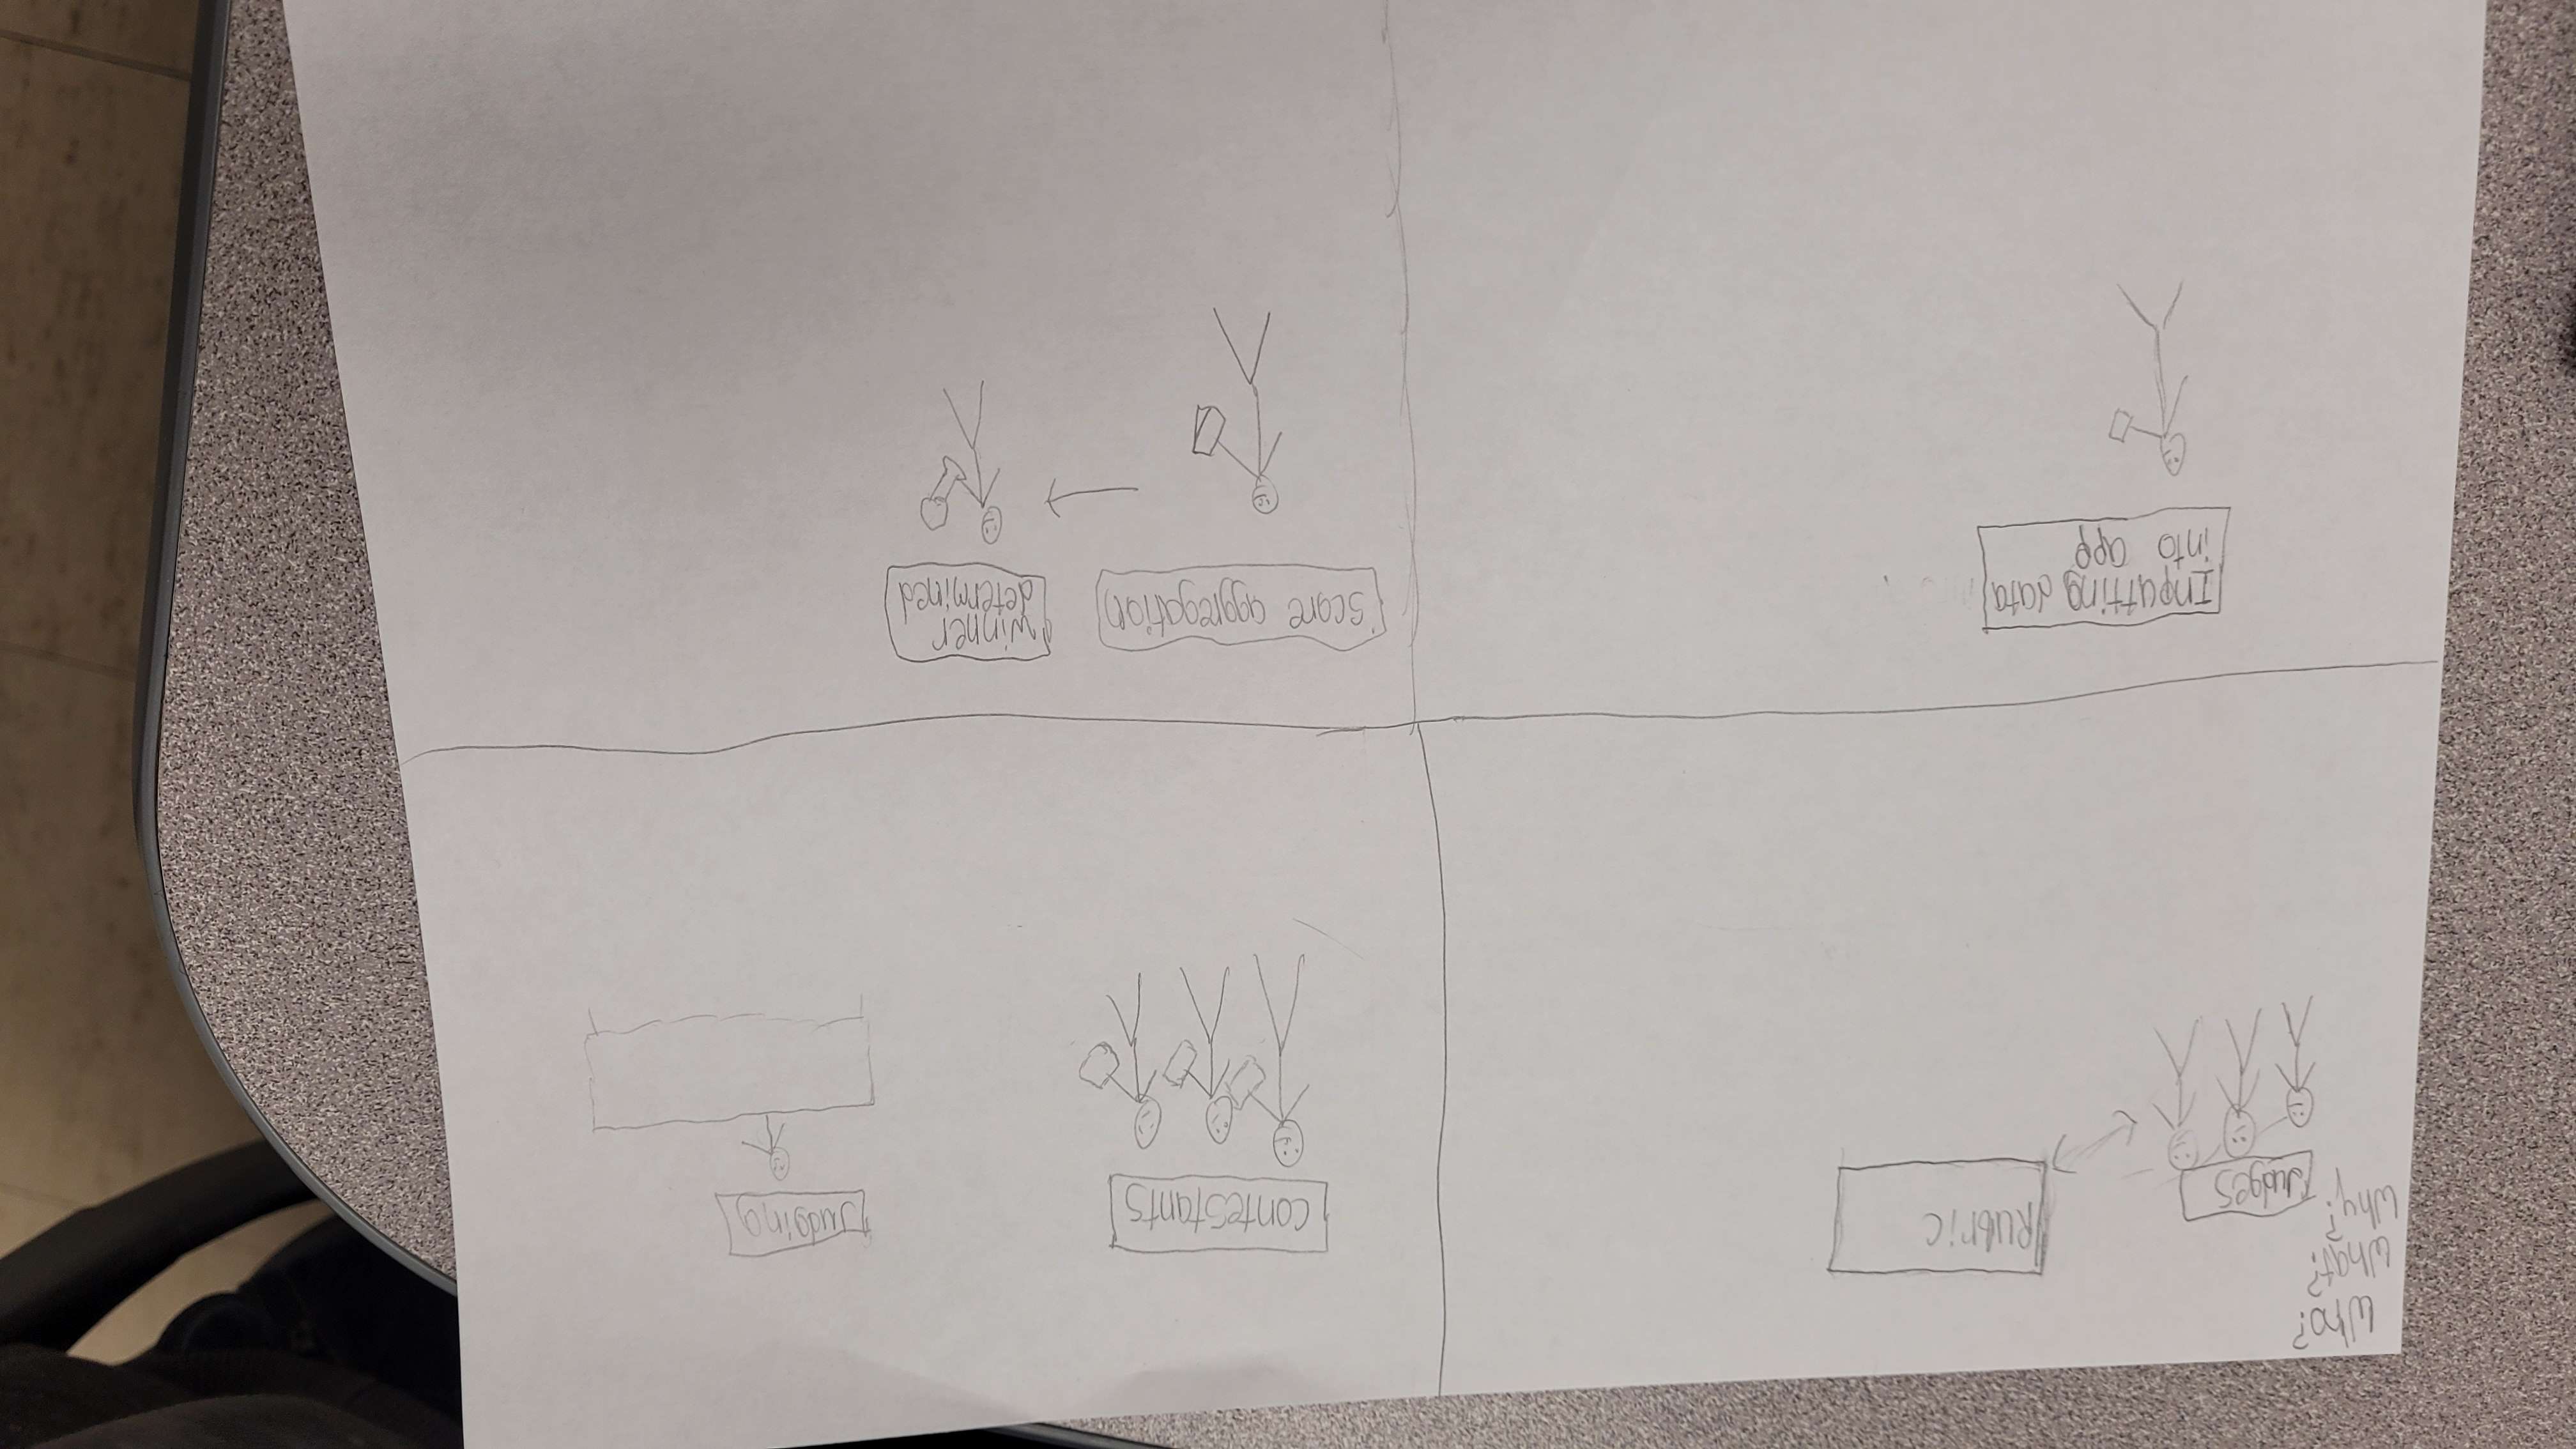 Who?
What?
Why?
Judges
Rubric
Contestants
Judging
Inputting data
into app
Score aggregation
Winner
determined